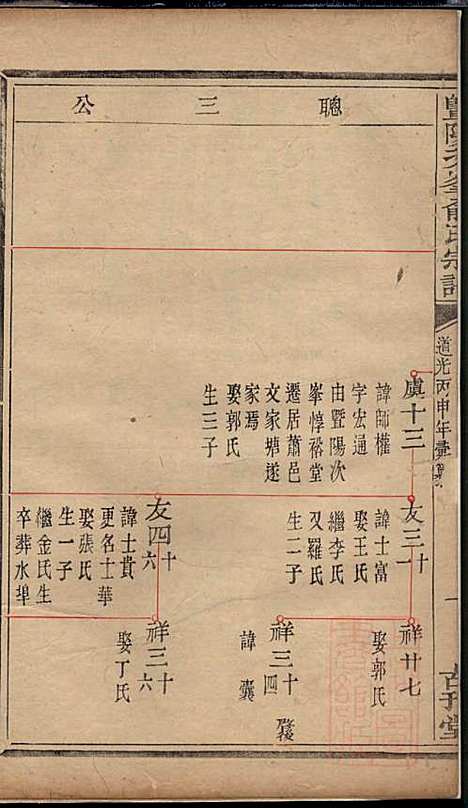 暨陽次峯俞氏宗譜
道光丙申年重
古弓堂
聰三公
虞十三
諱師權
字宏通
由暨陽次
峯惇裕堂
遷居蕭邑
文家塘遂
家焉
娶郭氏
生三子
友三十一
諱士富
娶王氏
繼李氏
又羅氏
生二子
友四十六
諱士貴
更名士華
娶張氏
生一子
繼金氏生
卒葬水埠
祥廿七
娶郭氏
祥三十四
諱囊
祥三十六
娶丁氏